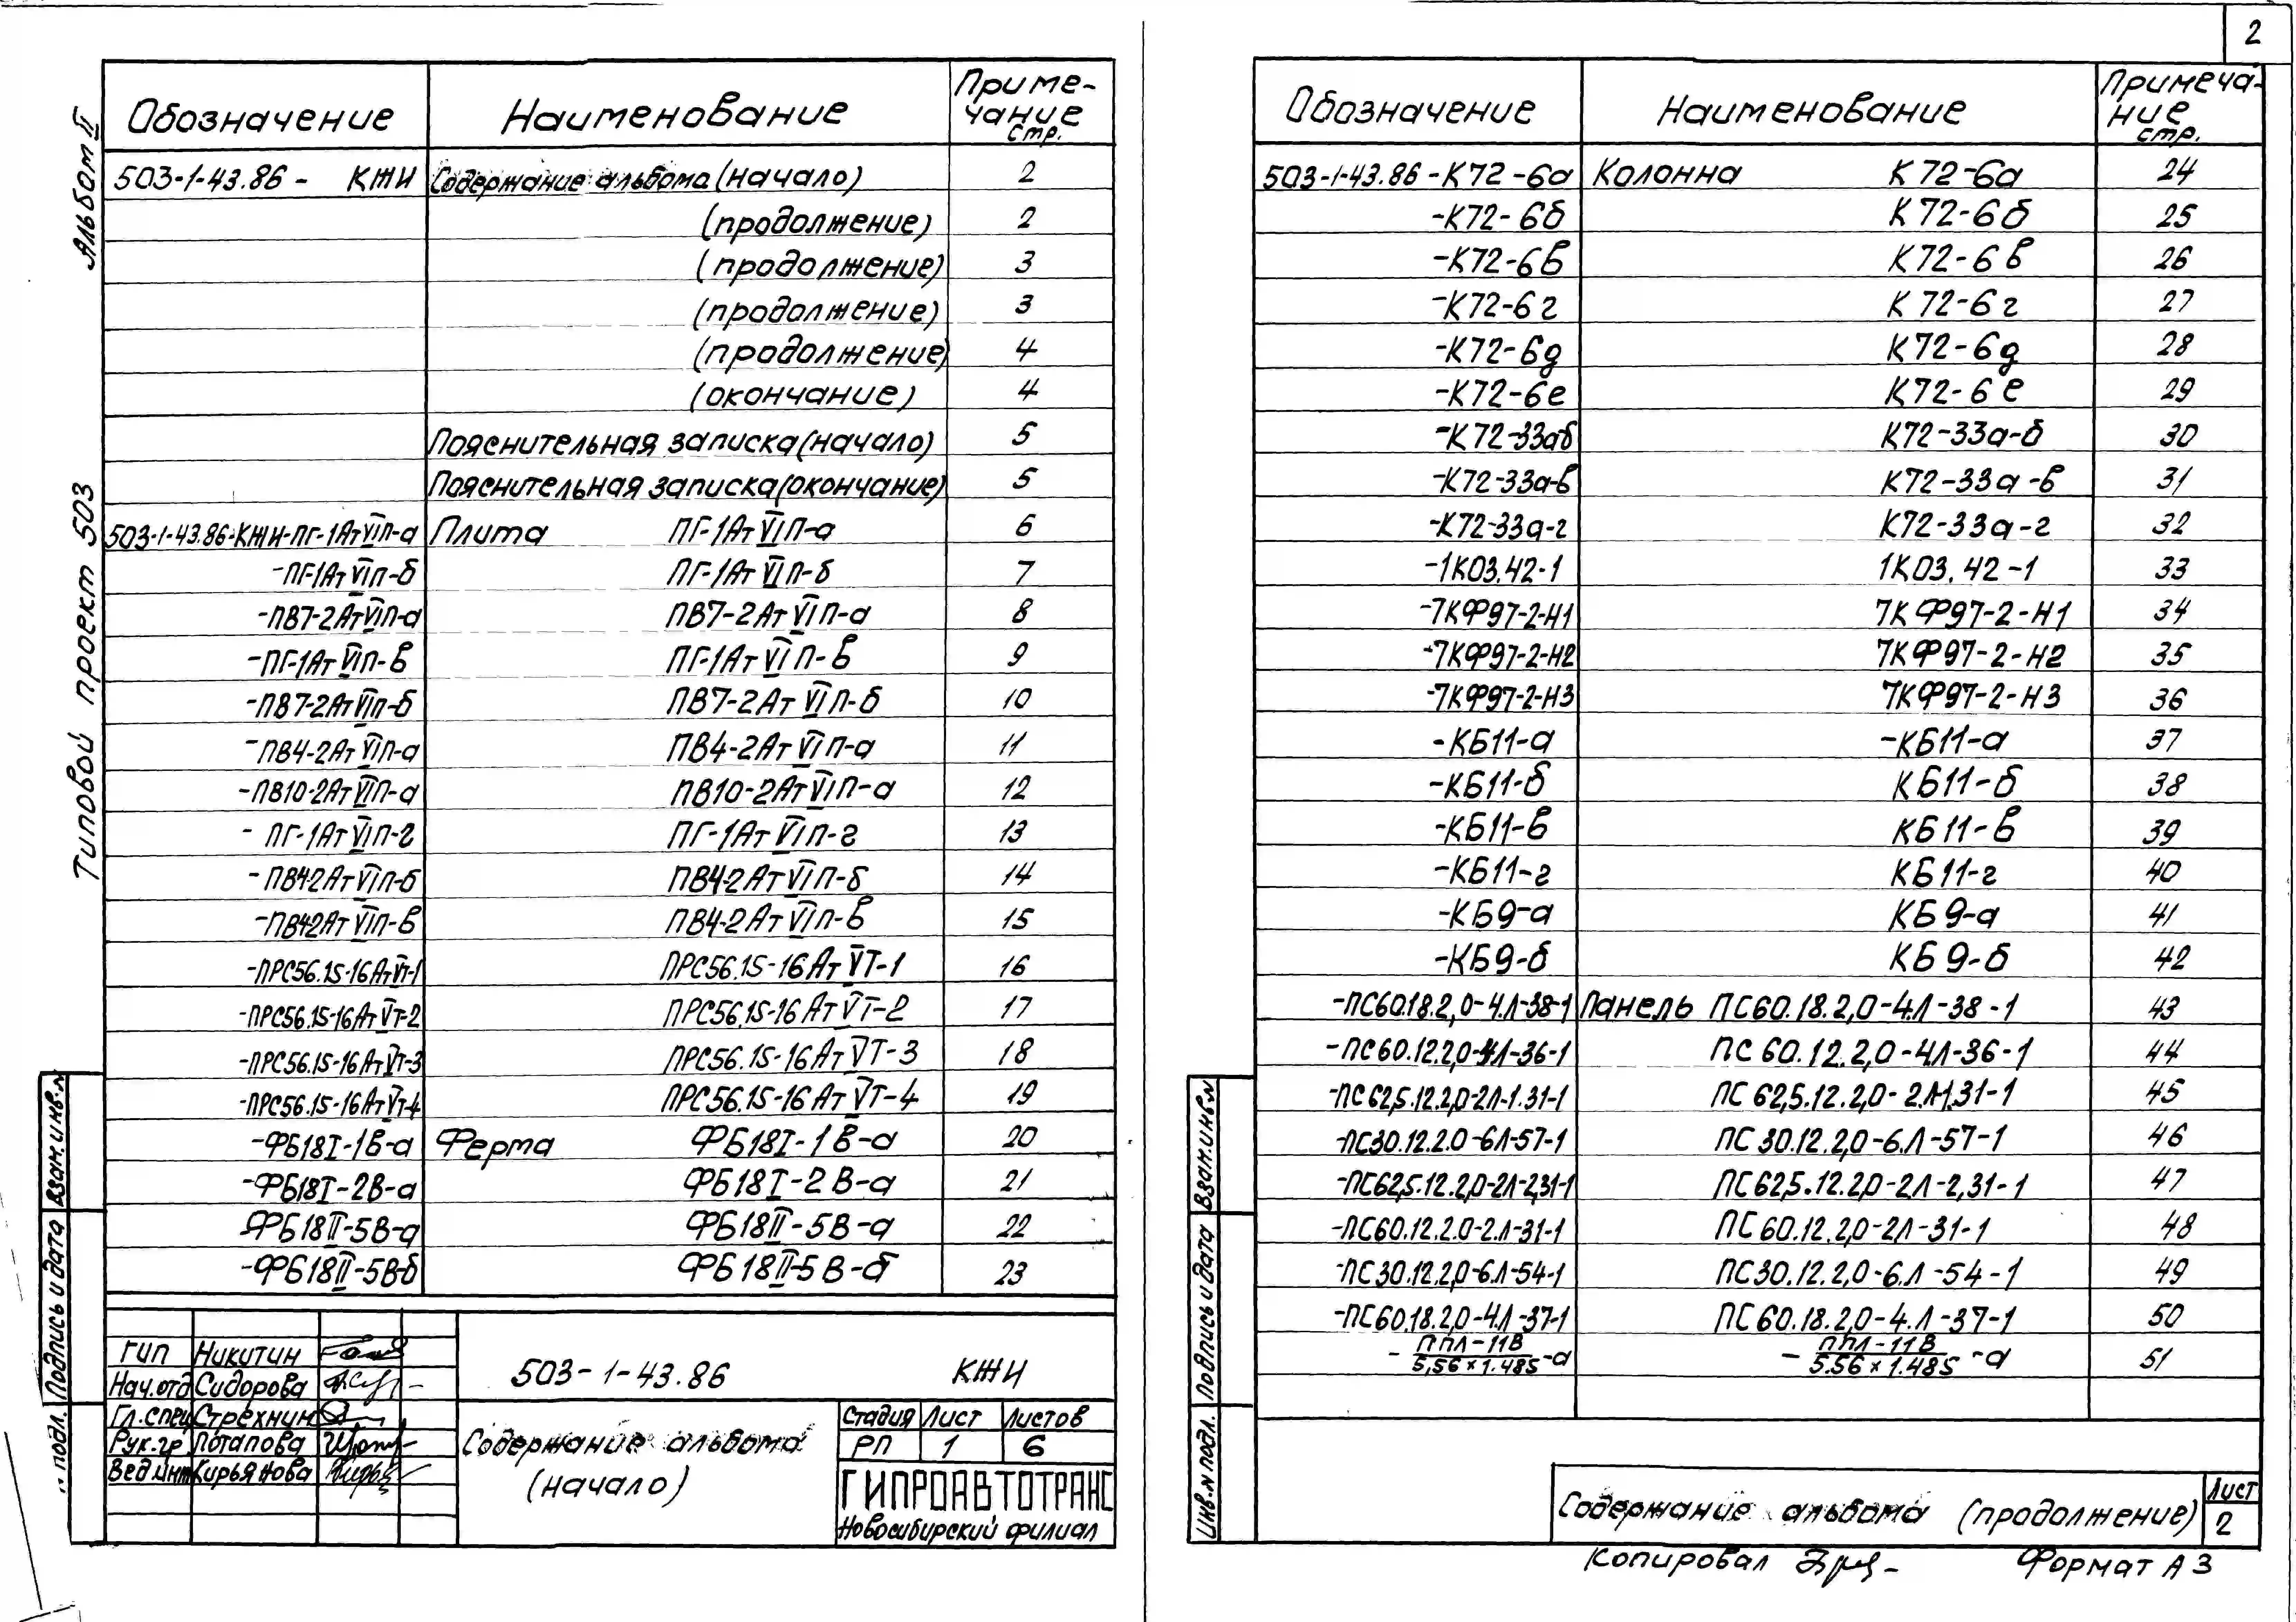 2
Альбом II
Типовой проект 503
Обозначение Наименование Примечание стр.
503-1-43.86- КЖИ Содержание альбома (начало) 2
(продолжение) 2
(продолжение) 3
(продолжение) 3
(продолжение) 4
(окончание) 4
Пояснительная записка (начало) 5
Пояснительная записка (окончание) 5
503-1-43.86-КЖИ-ПГ-1АтVIП-а Плита ПГ-1АтVIП-а 6
-ПГ-1АтVIП-б ПГ-1АтVIП-б 7
-ПВ7-2АтVIП-а ПВ7-2АтVIП-а 8
-ПГ-1АтVIП-в ПГ-1АтVIП-в 9
-ПВ7-2АтVIП-б ПВ7-2АтVIП-б 10
-ПВ4-2АтVIП-а ПВ4-2АтVIП-а 11
-ПВ10-2АтVIП-а ПВ10-2АтVIП-а 12
- ПГ-1АтVIП-г ПГ-1АтVIП-г 13
-ПВ4-2АтVIП-б ПВ4-2АтVIП-б 14
-ПВ4-2АтVIП-в ПВ4-2АтVIП-в 15
-ПРС56.15-16АтVТ-1 ПРС56.15-16АтVТ-1 16
-ПРС56.15-16АтVТ-2 ПРС56.15-16АтVТ-2 17
-ПРС56.15-16АтVТ-3 ПРС56.15-16АтVТ-3 18
-ПРС56.15-16АтVТ-4 ПРС56.15-16АтVТ-4 19
-ФБ18I-1В-а Ферма ФБ18I-1В-а 20
-ФБ18I-2В-а ФБ18I-2В-а 21
-ФБ18II-5В-а ФБ18II-5В-а 22
-ФБ18II-5В-б ФБ18II-5В-б 23
Взам.инв.№
Подпись и дата
подл.
ГИП Никитин
Нач.отд Сидорова
Гл.спец Стрехнин
Рук.гр. Потапова
Вед.инж Кирьянова
503-1-43.86 КЖИ
Содержание альбома
(начало)
Стадия Лист Листов
РП 1 6
ГИПРОАВТОТРАНС
Новосибирский филиал
Обозначение Наименование Примечание стр.
503-1-43.86-К72-6а Колонна К72-6а 24
-К72-6б К72-6б 25
-К72-6в К72-6в 26
-К72-6г К72-6г 27
-К72-6д К72-6д 28
-К72-6е К72-6е 29
-К72-33а-б К72-33а-б 30
-К72-33а-в К72-33а-в 31
-К72-33а-г К72-33а-г 32
-1К03.42-1 1К03.42-1 33
-7КФ97-2-Н1 7КФ97-2-Н1 34
-7КФ97-2-Н2 7КФ97-2-Н2 35
-7КФ97-2-Н3 7КФ97-2-Н3 36
-КБ11-а -КБ11-а 37
-КБ11-б КБ11-б 38
-КБ11-в КБ11-в 39
-КБ11-г КБ11-г 40
-КБ9-а КБ9-а 41
-КБ9-б КБ9-б 42
-ПС60.18.2,0-4.Л-38-1 Панель ПС60.18.2,0-4.Л-38-1 43
-ПС60.12.2,0-4Л-36-1 ПС60.12.2,0-4Л-36-1 44
-ПС62,5.12.2,0-2Л-1.31-1 ПС62,5.12.2,0-2Л-1.31-1 45
-ПС30.12.2.0-6Л-57-1 ПС30.12.2,0-6.Л-57-1 46
-ПС62,5.12.2,0-2Л-2,31-1 ПС62,5.12.2,0-2Л-2,31-1 47
-ПС60.12.2.0-2.Л-31-1 ПС60.12.2,0-2Л-31-1 48
-ПС30.12.2,0-6.Л-54-1 ПС30.12.2,0-6.Л-54-1 49
-ПС60.18.2,0-4.Л-37-1 ПС60.18.2,0-4.Л-37-1 50
ППЛ-11В ППЛ-11В
- 5,56×1.485 -а - 5.56×1.485 -а 51
Взам.инв.№
Подпись и дата
Инв.№ подл.
Содержание альбома (продолжение)
Лист
2
Копировал
Формат А3